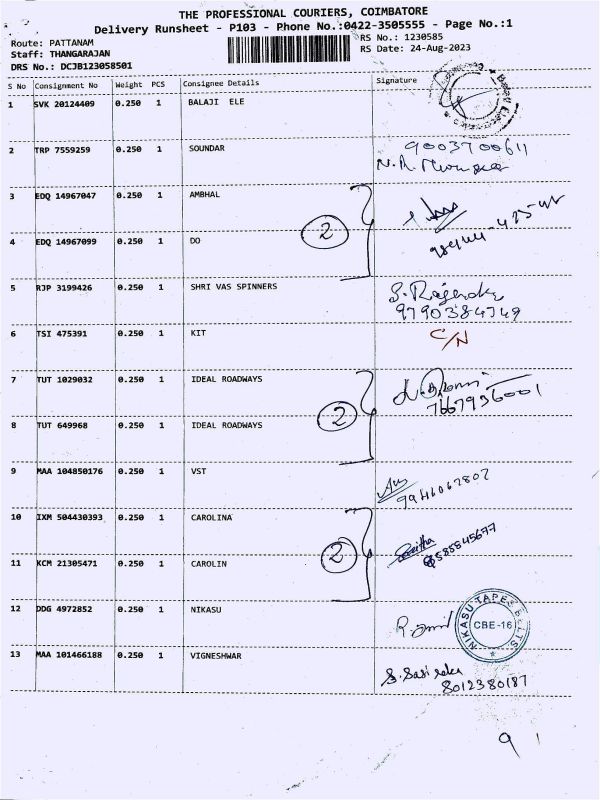 THE PROFESSIONAL COURIERS, COIMBATORE
Delivery Runsheet - P103 - Phone No.:0422-3505555 - Page No.:1
Route: PATTANAM
RS No.: 1230585
Staff: THANGARAJAN
RS Date: 24-Aug-2023
DRS No.: DCJB123058501
S No Consignment No Weight PCS Consignee Details Signature
1 SVK 20124409 0.250 1 BALAJI ELE
2 TRP 7559259 0.250 1 SOUNDAR 9003700611
3 EDQ 14967047 0.250 1 AMBHAL
2
4 EDQ 14967099 0.250 1 DO
5 RJP 3199426 0.250 1 SHRI VAS SPINNERS
9790384749
6 TSI 475391 0.250 1 KIT C/N
7 TUT 1029032 0.250 1 IDEAL ROADWAYS
7667936001
2
8 TUT 649968 0.250 1 IDEAL ROADWAYS
9 MAA 104850176 0.250 1 VST
9946062802
10 IXM 504430393 0.250 1 CAROLINA
2
11 KCM 21305471 0.250 1 CAROLIN
12 DDG 4972852 0.250 1 NIKASU
NIKASU TAPES BELTS
CBE-16
13 MAA 101466188 0.250 1 VIGNESHWAR
8012380187
9 1